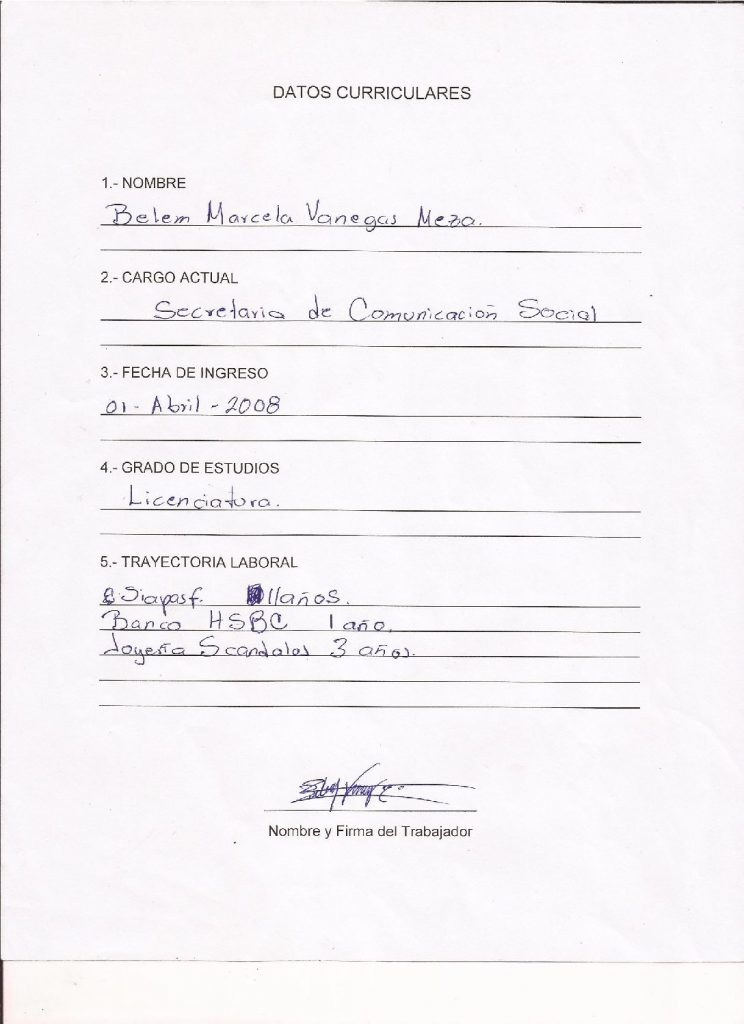 DATOS CURRICULARES
1.- NOMBRE
Belem Marcela Vanegas Meza.
2.- CARGO ACTUAL
Secretaria de Comunicación Social
3.- FECHA DE INGRESO
01- Abril - 2008
4.- GRADO DE ESTUDIOS
Licenciatura.
5.- TRAYECTORIA LABORAL
Siapasf. 11años.
Banco HSBC 1 año.
Joyería Scandalos 3 años.
Nombre y Firma del Trabajador